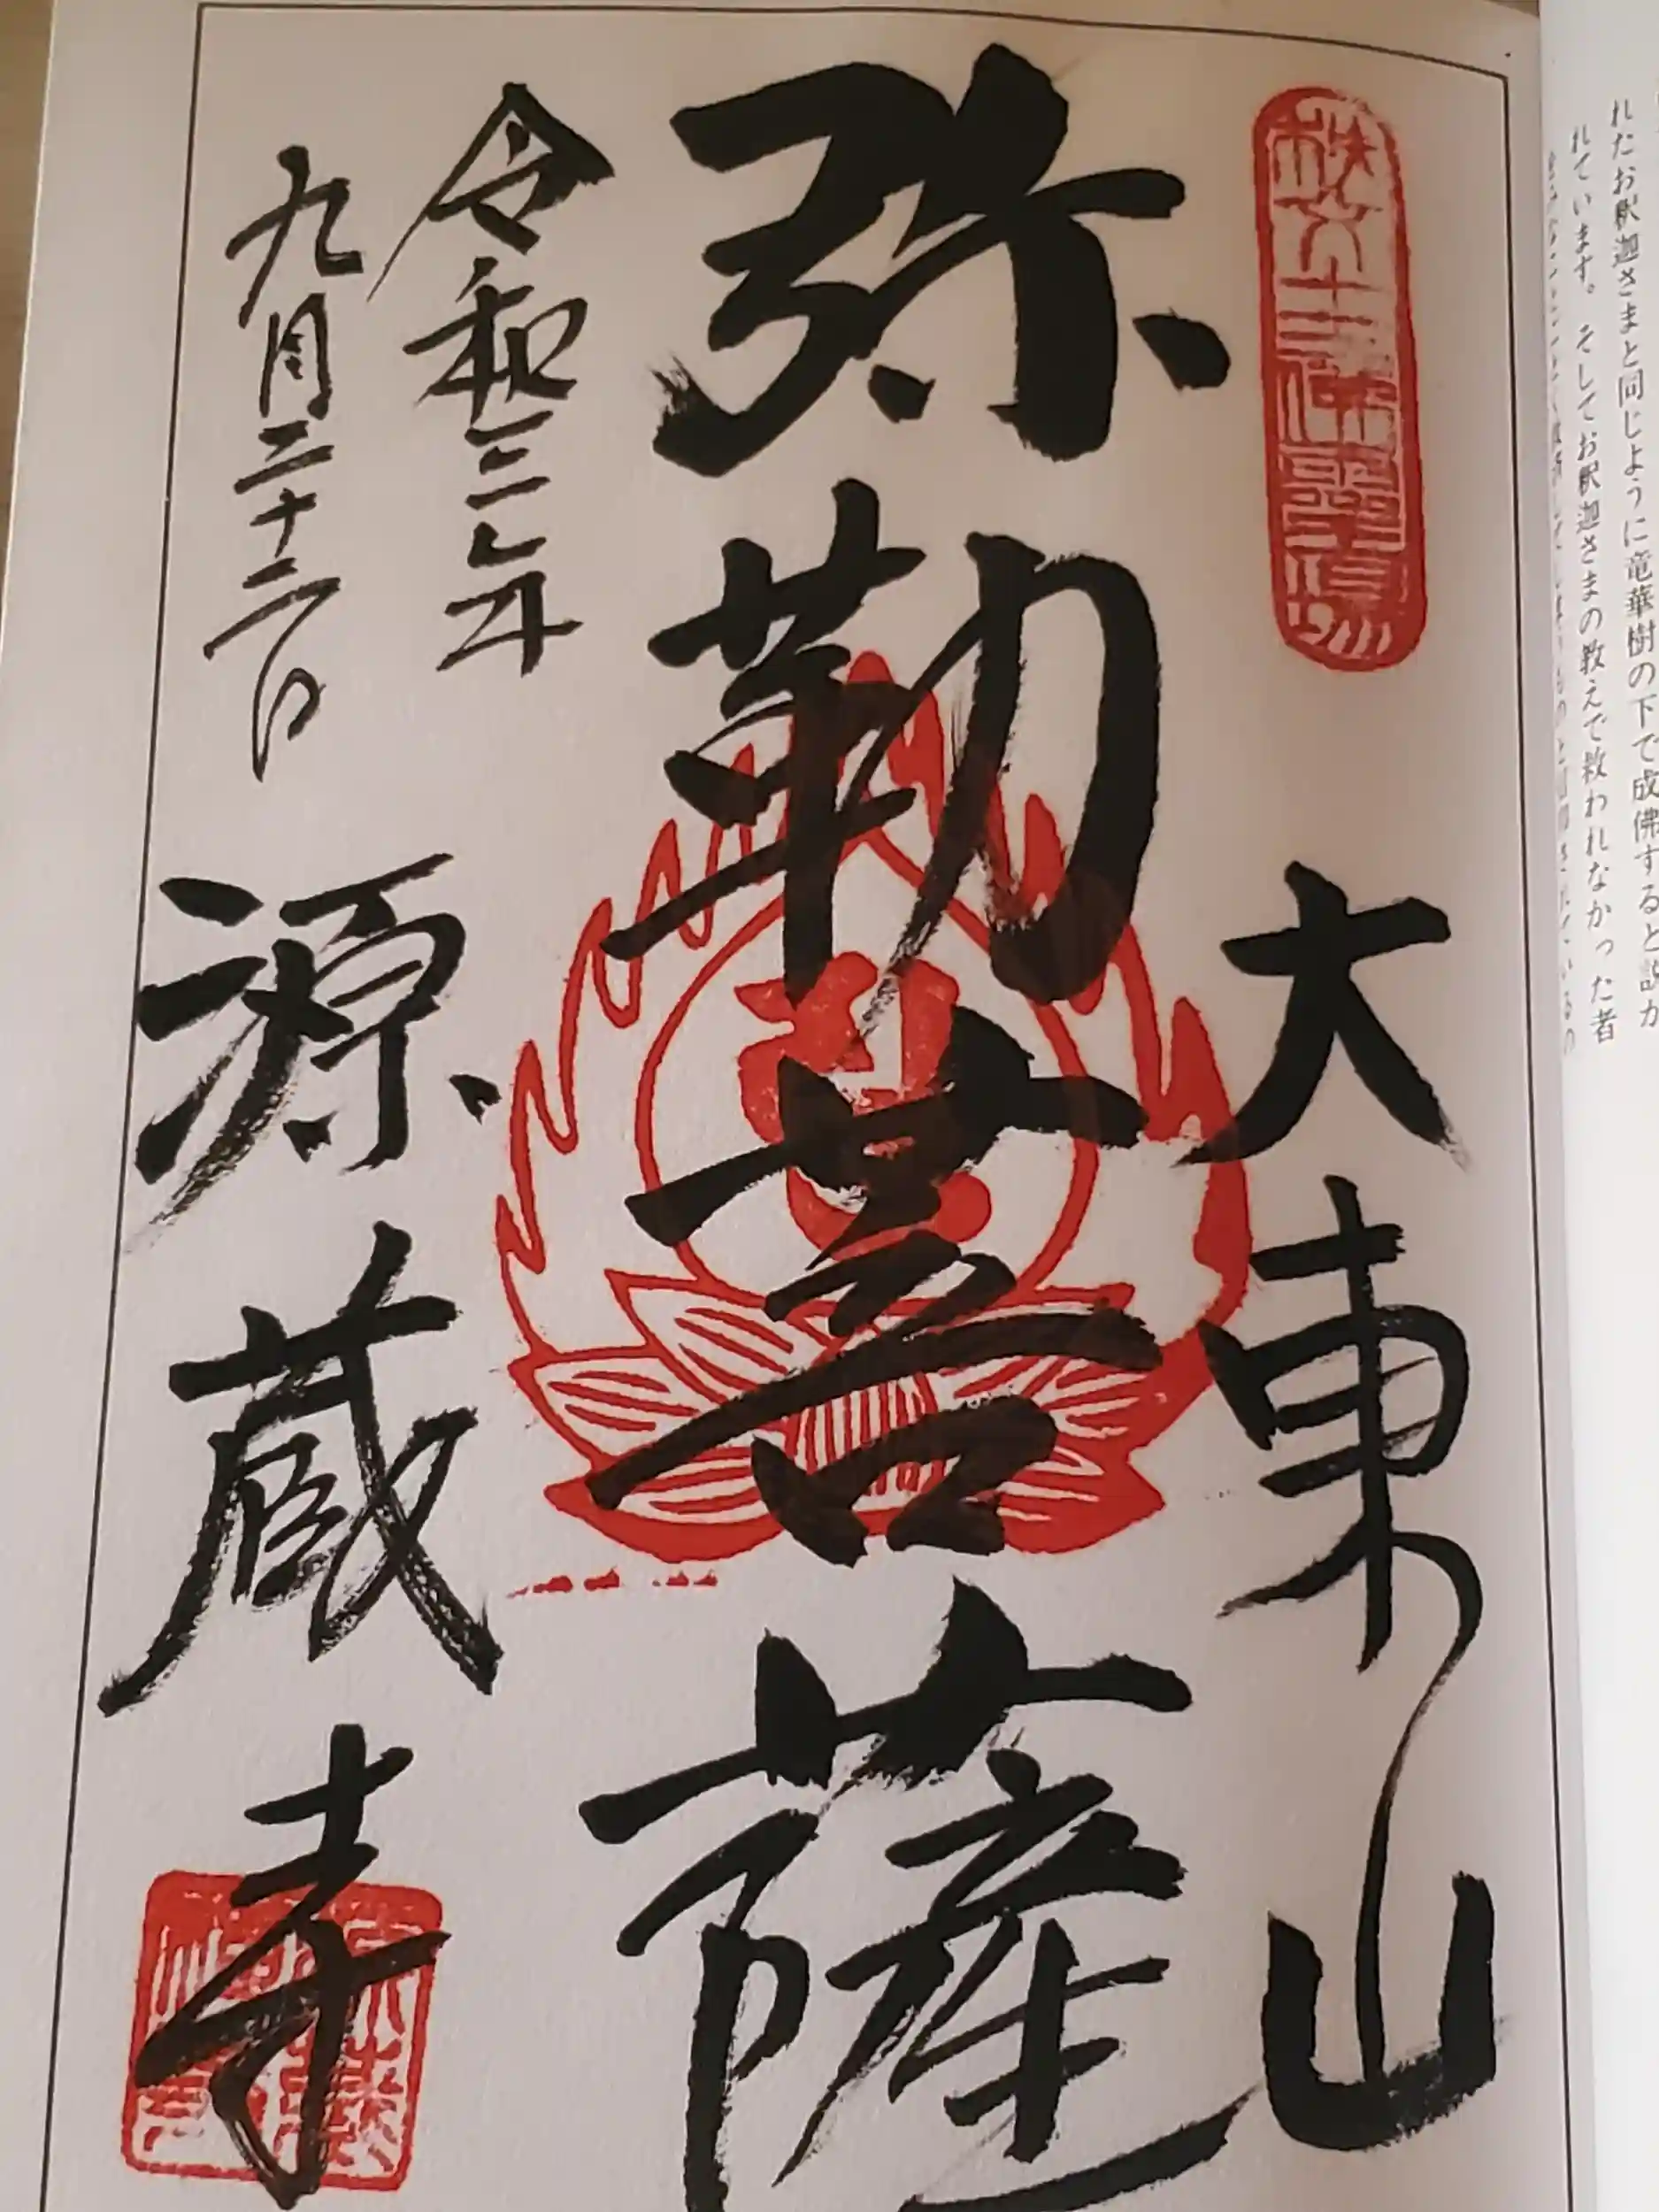 れたお釈迦さまと同じように竜華樹の下で成佛すると説か
れています。そしてお釈迦さまの教えで救われなかった者
秩父十三佛霊場
大東山
弥勒菩薩
令和三年
九月二十二日
源蔵寺